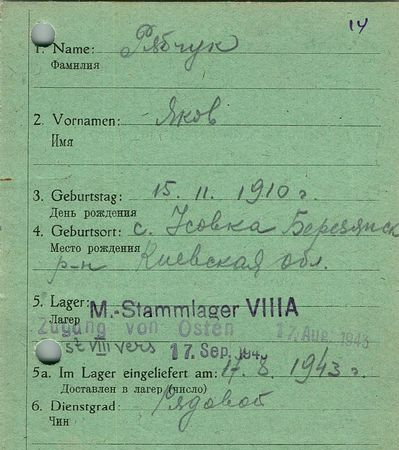 14
1. Name: Рябчук
Фамилия
2. Vornamen: Яков
Имя
3. Geburtstag: 15. 11. 1910 г.
День рождения
4. Geburtsort: с. Усовка Березянск
Место рождения
р-н Киевская обл.
5. Lager: M.-Stammlager VIIIA
Лагер
Zugang von Osten 17. Aug. 1943
st VIII vers 17. Sep. 194
5a. Im Lager eingeliefert am: 17. 8. 1943 г.
Доставлен в лагер (число)
6. Dienstgrad: Рядовой
Чин